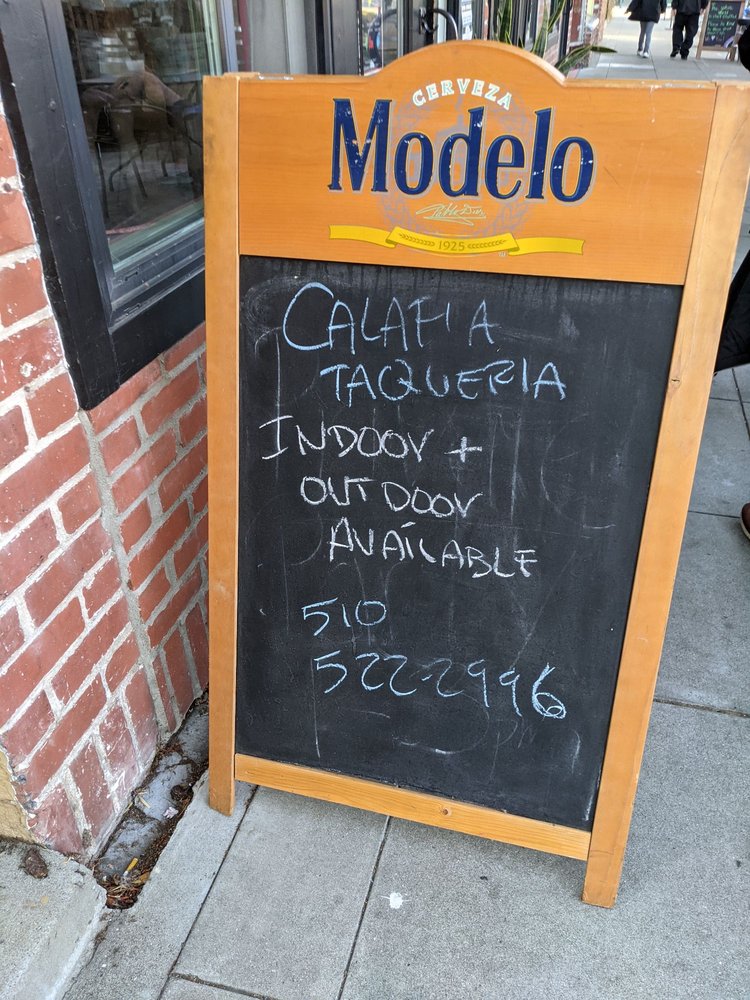 CERVEZA
Modelo
1925
CALAFIA
TAQUERIA
INDOOR +
OUTDOOR
AVAILABLE
510
522-2996